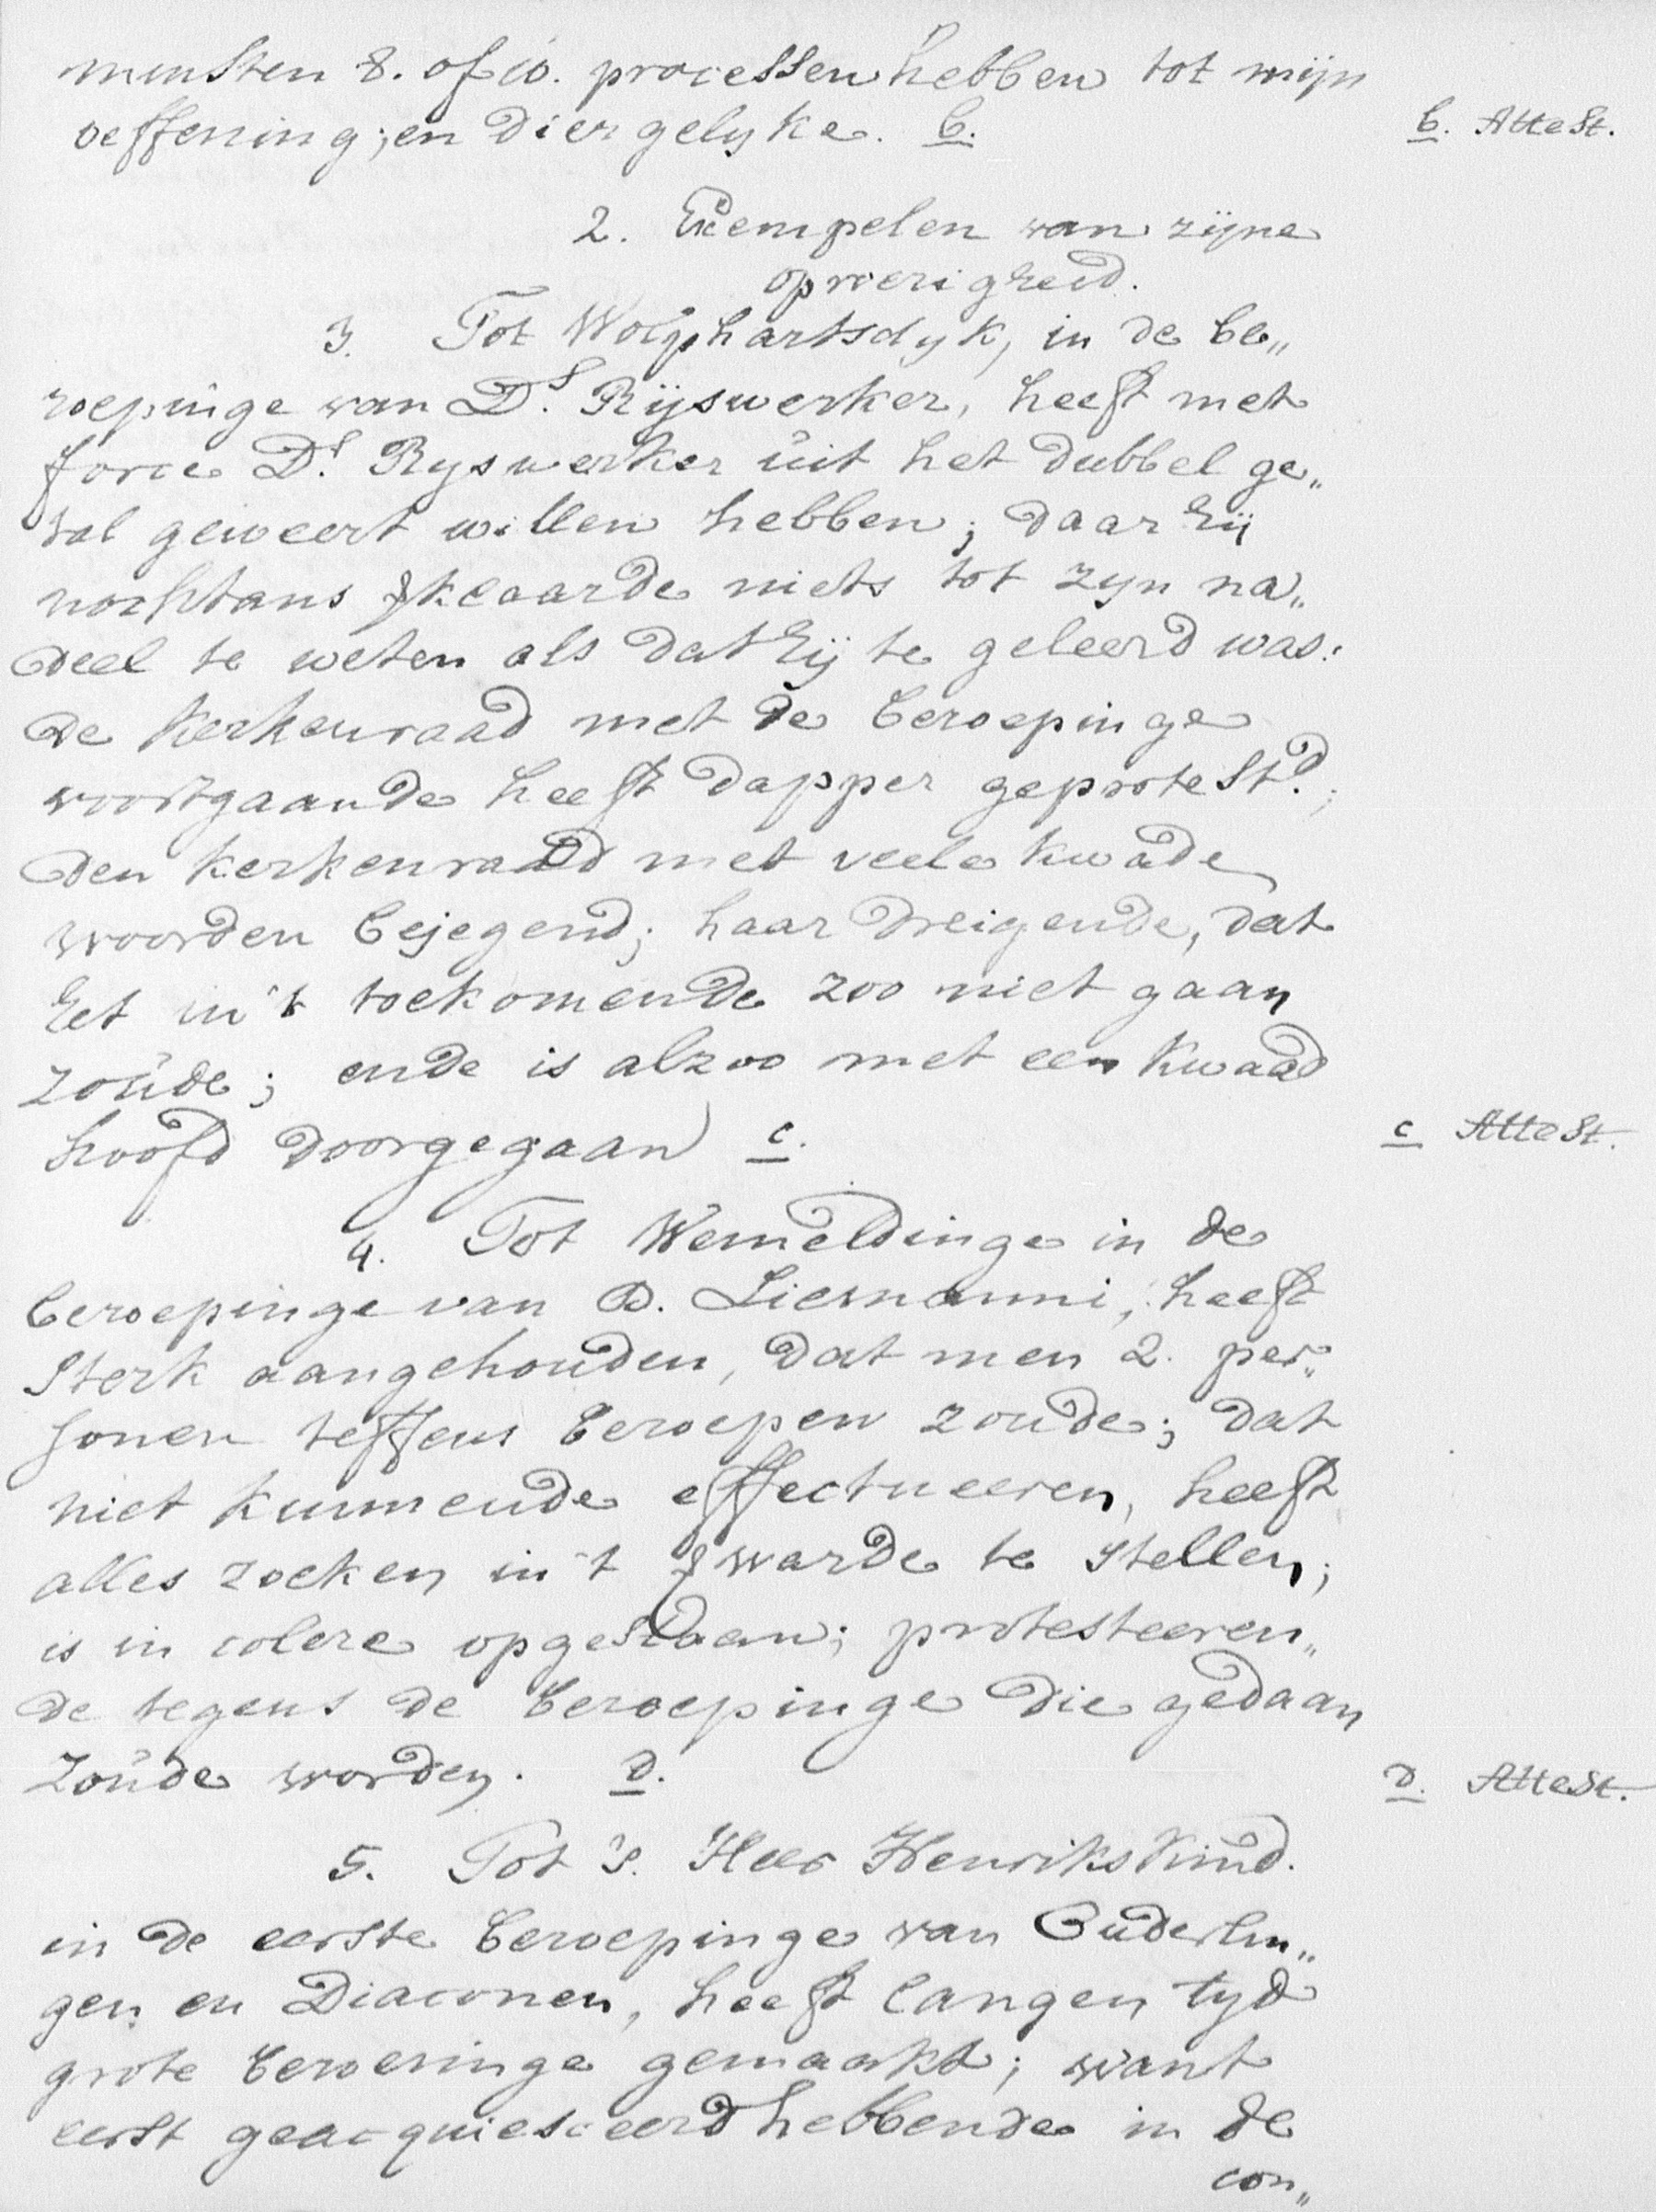 minsten 8. of 10. processen hebben tot mijn
oeffening; en diergelyke. b.
b. Attest.
2. Exempelen van zijne
oproerigheid.
3. Tot Wolphartsdyk, in de be„
roepinge van Ds. Rijswerker, heeft met
force Ds. Ryswerker uit het dubbel ge„
tal geweert willen hebben; daar hij
nochtans verklaarde niets tot zyn na„
deel te weten als dat hij te geleerd was:
de Kerkenraad met de beroepinge
voortgaande heeft dapper geprotestd.;
den kerkenraad met veele kwade
woorden bejegend; haar dreigende, dat
het in 't toekomende zoo niet gaan
zoude; ende is alzoo met een kwaad
hoofd doorgegaan c.
c Attest.
4. Tot Wemeldinge in de
beroepinge van D. Liesnanni, heeft
sterk aangehouden, dat men 2. per„
sonen teffens beroepen zoude; dat
niet kunnende effectueeren, heeft
alles zoeken in 't verwarde te stellen;
is in colere opgestaan; protesteeren„
de tegens de beroepinge die gedaan
zoude worden. D.
D. Attest.
5. Tot 's. Heer Henriks Kind.
in de eerste beroepinge van Ouderlin„
gen en Diaconen, heeft langen tyd
grote beroeringe gemaakt; want
eerst geacquiesceerd hebbende in de
con„